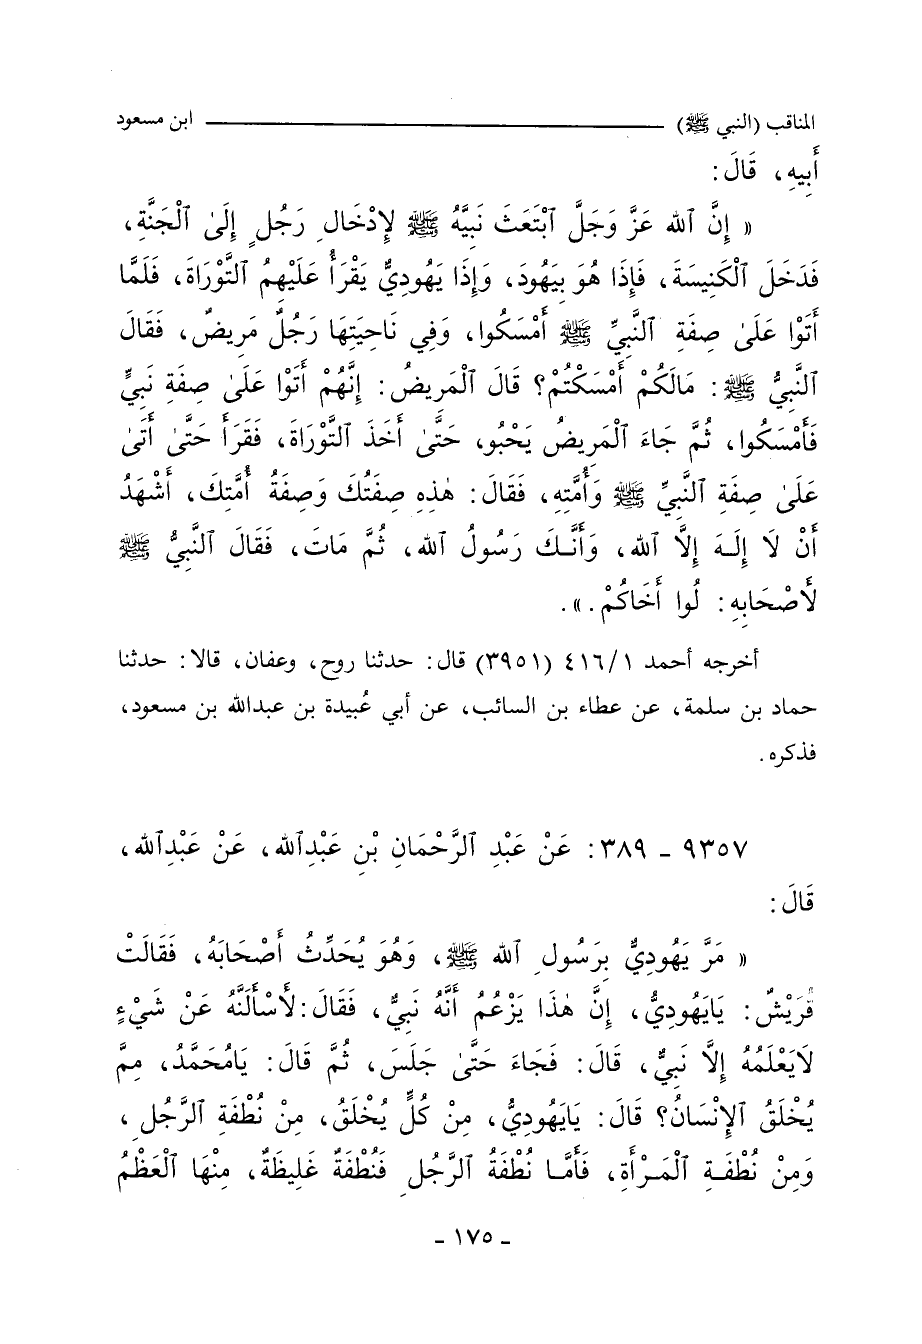 المناقب (النبي ﷺ) ــــــــــــــــــــــ ابن مسعود
أَبِيهِ، قَالَ:
« إِنَّ ٱللهَ عَزَّ وَجَلَّ ٱبْتَعَثَ نَبِيَّهُ ﷺ لِإِدْخَالِ رَجُلٍ إِلَىٰ ٱلْجَنَّةِ،
فَدَخَلَ ٱلْكَنِيسَةَ، فَإِذَا هُوَ بِيَهُودَ، وَإِذَا يَهُودِيٌّ يَقْرَأُ عَلَيْهِمُ ٱلتَّوْرَاةَ، فَلَمَّا
أَتَوْا عَلَىٰ صِفَةِ ٱلنَّبِيِّ ﷺ أَمْسَكُوا، وَفِي نَاحِيَتِهَا رَجُلٌ مَرِيضٌ، فَقَالَ
ٱلنَّبِيُّ ﷺ: مَالَكُمْ أَمْسَكْتُمْ؟ قَالَ ٱلْمَرِيضُ: إِنَّهُمْ أَتَوْا عَلَىٰ صِفَةِ نَبِيٍّ
فَأَمْسَكُوا، ثُمَّ جَاءَ ٱلْمَرِيضُ يَحْبُو، حَتَّىٰ أَخَذَ ٱلتَّوْرَاةَ، فَقَرَأَ حَتَّىٰ أَتَىٰ
عَلَىٰ صِفَةِ ٱلنَّبِيِّ ﷺ وَأُمَّتِهِ، فَقَالَ: هٰذِهِ صِفَتُكَ وَصِفَةُ أُمَّتِكَ، أَشْهَدُ
أَنْ لَا إِلَهَ إِلَّا ٱللهُ، وَأَنَّكَ رَسُولُ ٱللهِ، ثُمَّ مَاتَ، فَقَالَ ٱلنَّبِيُّ ﷺ
لِأَصْحَابِهِ: لُوا أَخَاكُمْ.».
أخرجه أحمد ٤١٦/١ (٣٩٥١) قال: حدثنا روح، وعفان، قالا: حدثنا
حماد بن سلمة، عن عطاء بن السائب، عن أبي عُبيدة بن عبدالله بن مسعود،
فذكره.
٩٣٥٧ ـ ٣٨٩: عَنْ عَبْدِ ٱلرَّحْمَانِ بْنِ عَبْدِٱللهِ، عَنْ عَبْدِٱللهِ،
قَالَ:
« مَرَّ يَهُودِيٌّ بِرَسُولِ ٱللهِ ﷺ، وَهُوَ يُحَدِّثُ أَصْحَابَهُ، فَقَالَتْ
قُرَيْشٌ: يَايَهُودِيُّ، إِنَّ هٰذَا يَزْعُمُ أَنَّهُ نَبِيٌّ، فَقَالَ: لَأَسْأَلَنَّهُ عَنْ شَيْءٍ
لَايَعْلَمُهُ إِلَّا نَبِيٌّ، قَالَ: فَجَاءَ حَتَّىٰ جَلَسَ، ثُمَّ قَالَ: يَامُحَمَّدُ، مِمَّ
يُخْلَقُ ٱلْإِنْسَانُ؟ قَالَ: يَايَهُودِيُّ، مِنْ كُلٍّ يُخْلَقُ، مِنْ نُطْفَةِ ٱلرَّجُلِ،
وَمِنْ نُطْفَةِ ٱلْمَرْأَةِ، فَأَمَّا نُطْفَةُ ٱلرَّجُلِ فَنُطْفَةٌ غَلِيظَةٌ، مِنْهَا ٱلْعَظْمُ
ـ ١٧٥ ـ